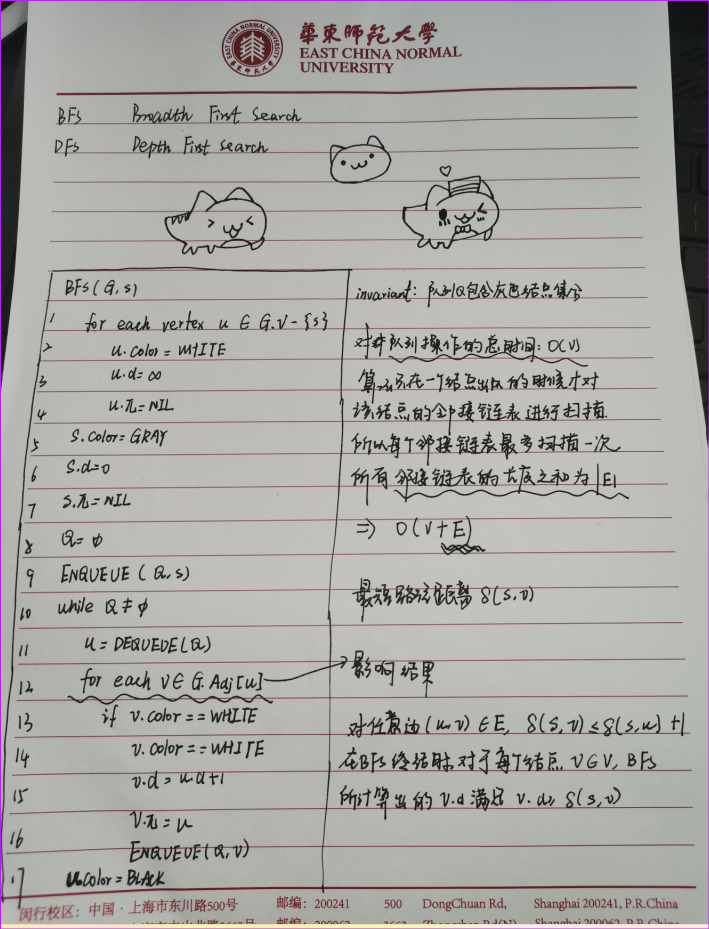 華東師範大學
EAST CHINA NORMAL
UNIVERSITY
EAST CHINA NORMAL UNIVERSITY
BFS Broadth First Search
DFS Depth First Search
BFS(G,s)
1 for each vertex u ∈ G.V-{s}
2 u.color = WHITE
3 u.d=∞
4 u.π=NIL
5 s.color=GRAY
6 s.d=0
7 s.π=NIL
8 Q=∅
9 ENQUEUE(Q,s)
10 while Q≠∅
11 u=DEQUEDE(Q)
12 for each v∈G.Adj[u]
13 if v.color==WHITE
14 v.color==WHITE
15 v.d=u.d+1
16 v.π=u
ENQUEUE(Q,v)
17 u.color=BLACK
invariant: 队列Q包含灰色结点集合
对队列操作的总时间:O(V)
算法只在一个结点出队的时候才对
该结点的邻接链表进行扫描
所以每个邻接链表最多扫描一次
所有邻接链表的长度之和为|E|
⇒ O(V+E)
最短路径距离 δ(s,v)
影响结果
对任意边(u,v)∈E, δ(s,v)≤δ(s,u)+1
在BFS终结时,对于每个结点 v∈V, BFS
所计算出的v.d满足 v.d≥δ(s,v)
闵行校区:中国·上海市东川路500号 邮编:200241 500 DongChuan Rd, Shanghai 200241, P.R.China